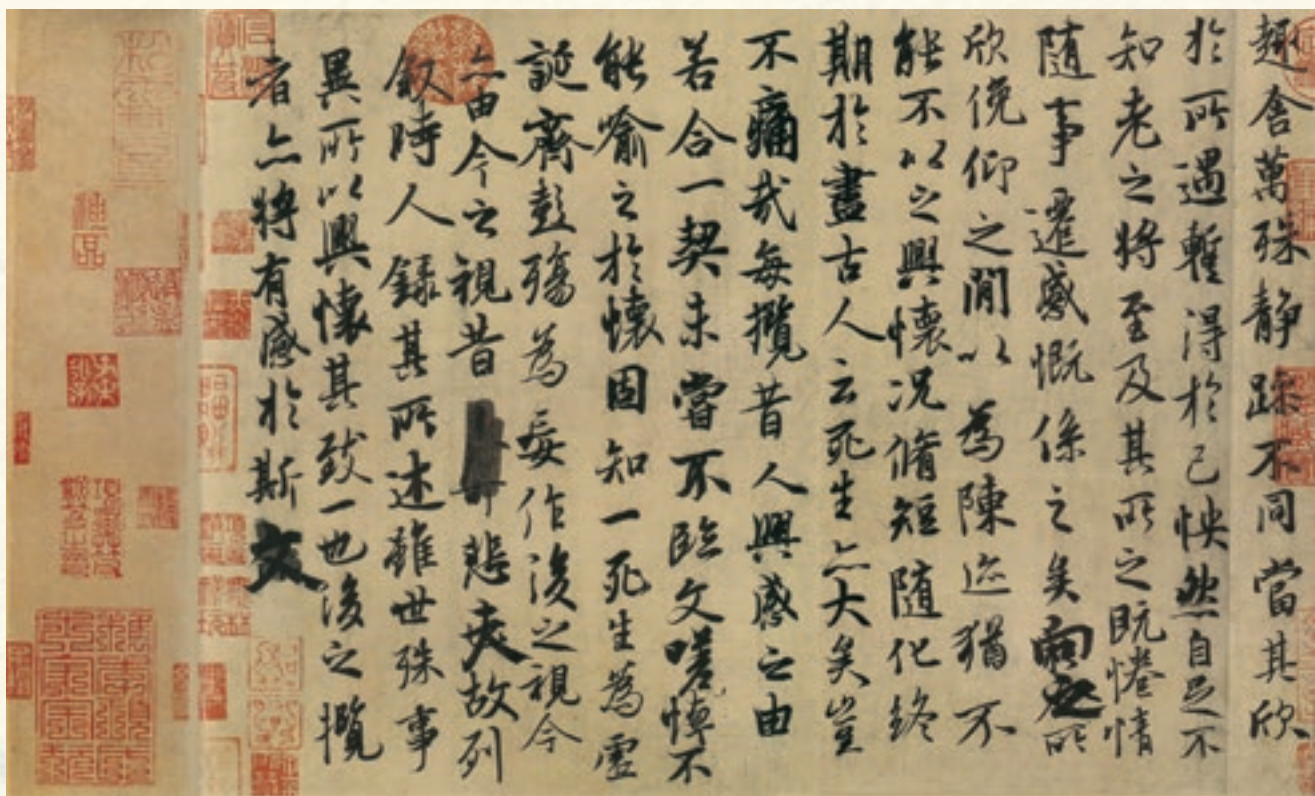 趣舍萬殊静躁不同當其欣
於所遇暫得於己怏然自足不
知老之將至及其所之既惓情
隨事遷感慨係之矣向之所
欣俛仰之閒以為陳迹猶不
能不以之興懷況脩短隨化終
期於盡古人云死生亦大矣豈
不痛哉每攬昔人興感之由
若合一契未嘗不臨文嗟悼不
能喻之於懷固知一死生為虛
誕齊彭殤為妄作後之視今
亦由今之視昔悲夫故列
敘時人錄其所述雖世殊事
異所以興懷其致一也後之攬
者亦將有感於斯文